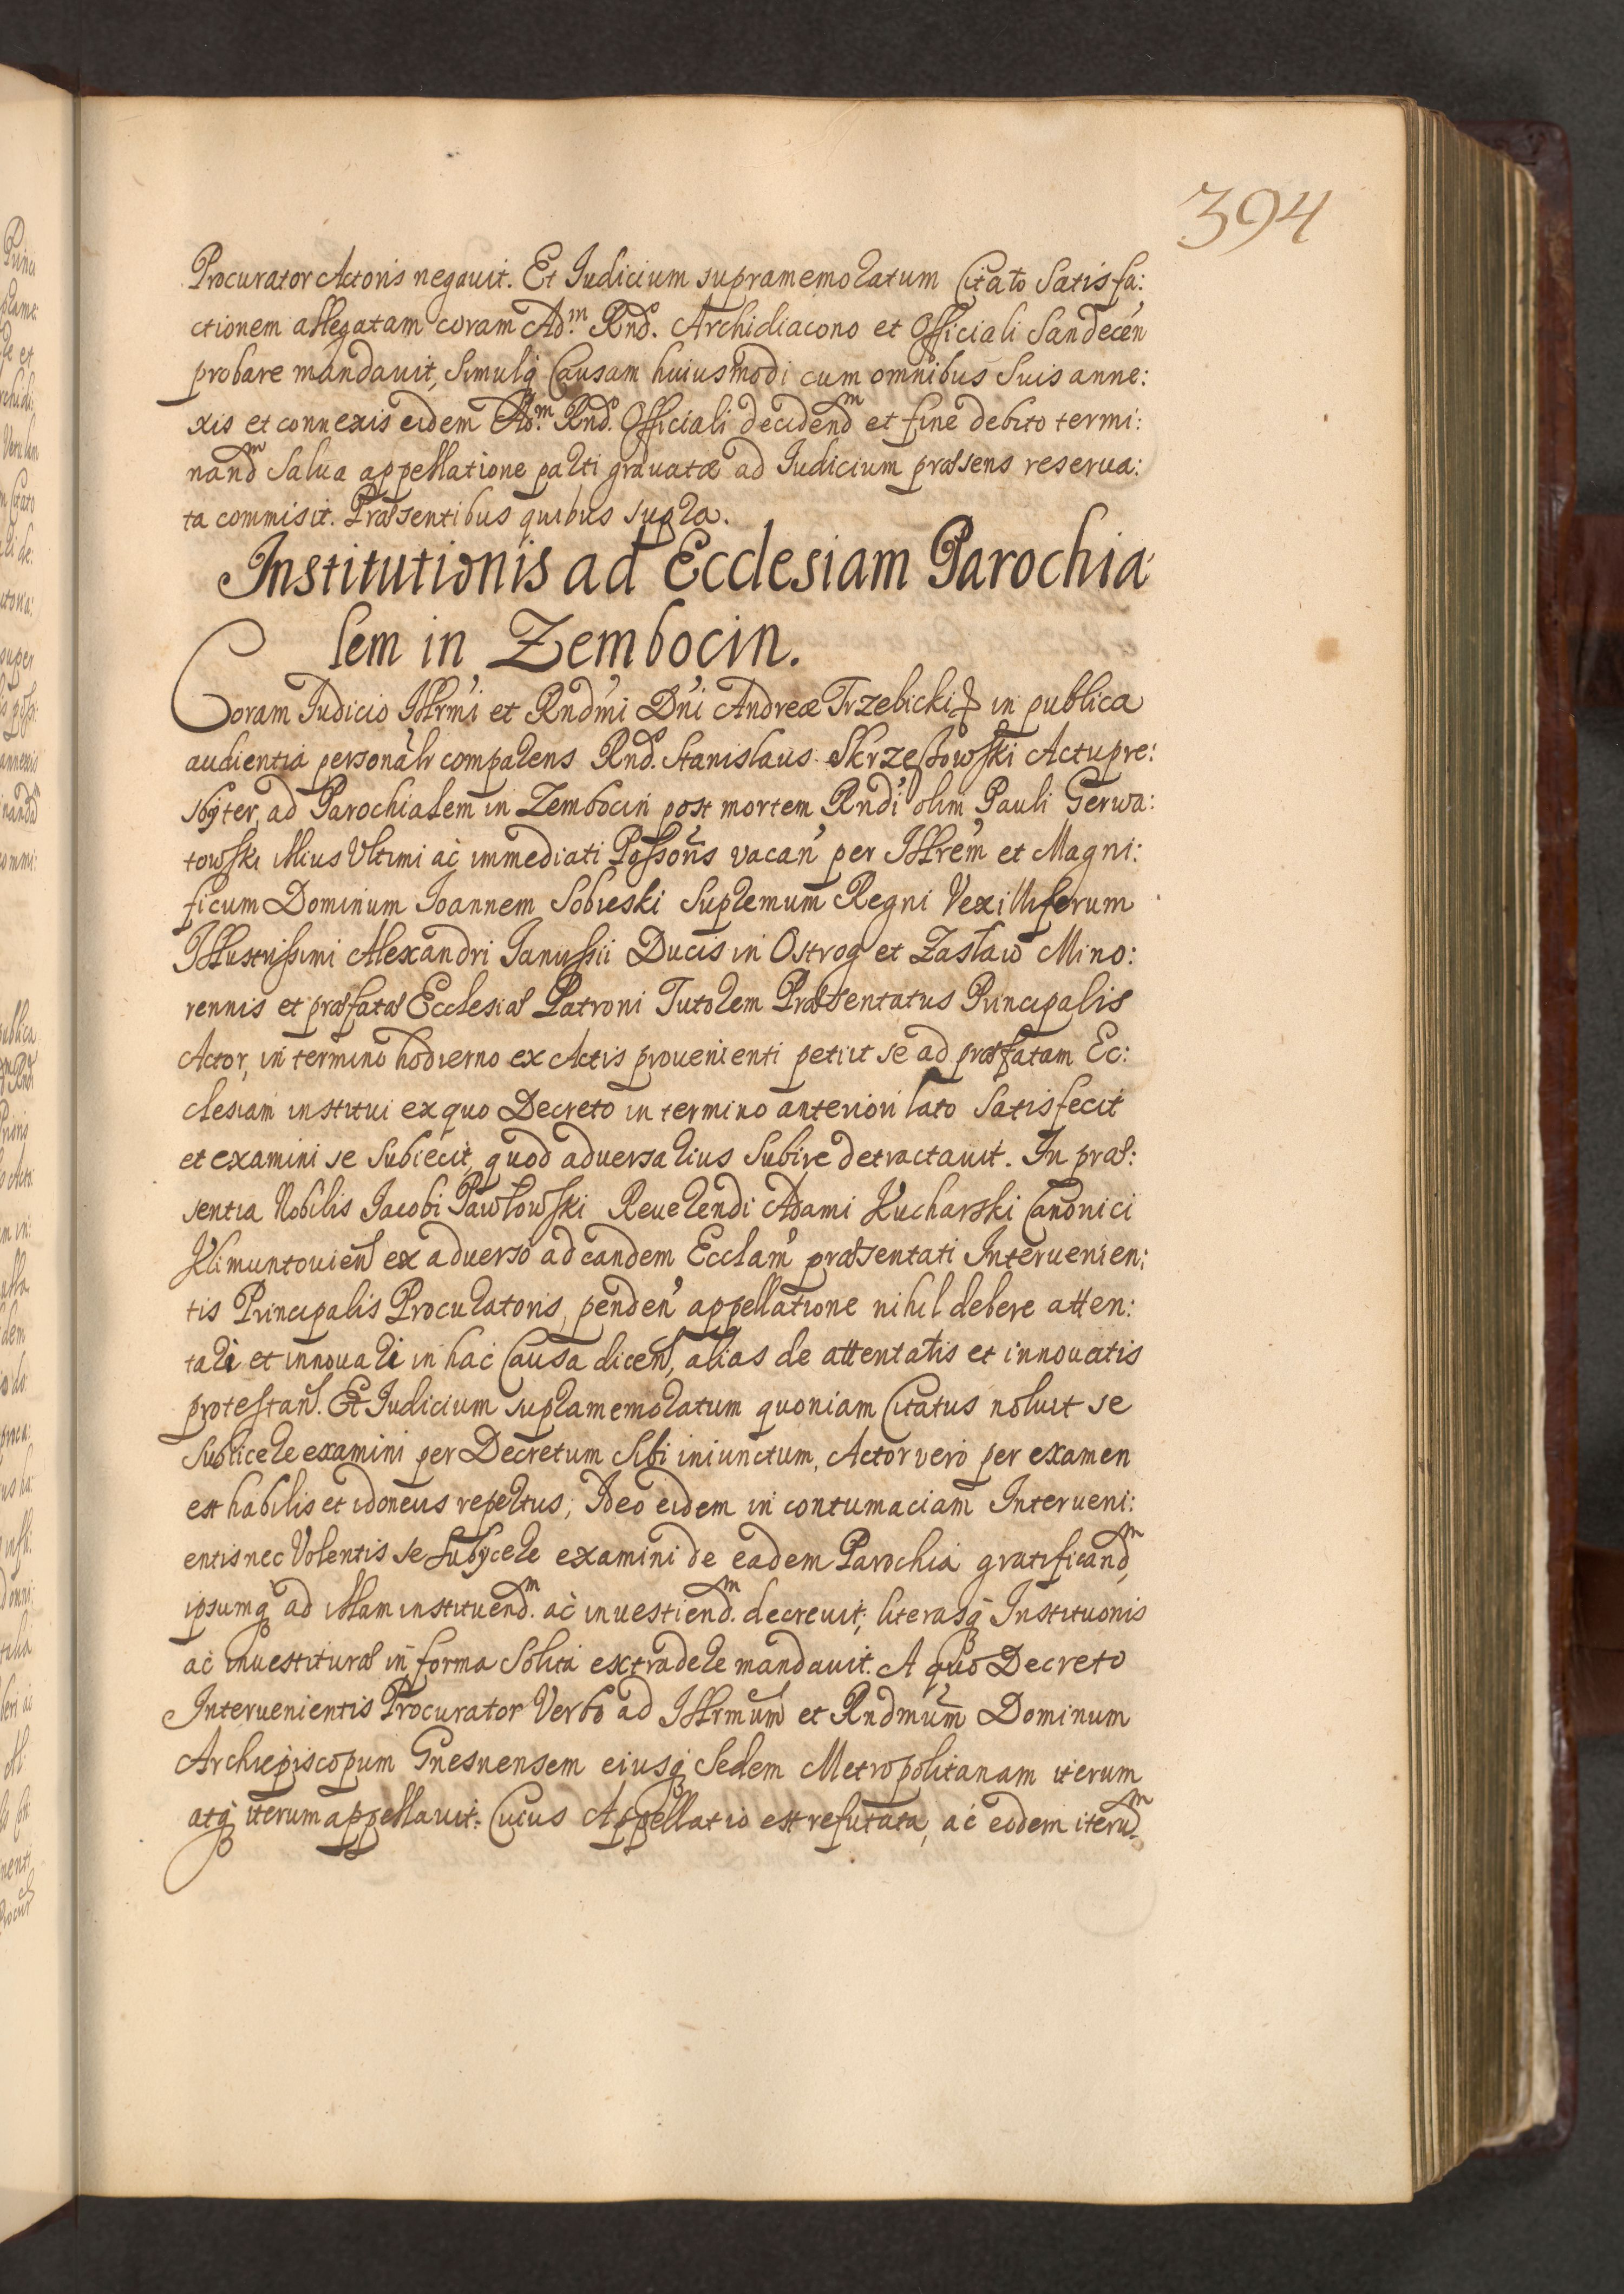 394
Procurator Actoris negavit. Et Iudicium supramemoratum Citato Satisfa:
ctionem allegatam coram Ad.m Rnd. Archidiacono et Officiali Sandecen
probare mandavit, Simulq Causam huiusmodi cum omnibus Suis anne:
xis et connexis eidem Ad.m Rnd. Officiali decidendm et fine debito termi:
nandm Salua appellatione parti gravatæ ad Iudicium præsens reserua:
ta commisit. Præsentibus quibus supra.
Institutionis ad Ecclesiam Parochia:
lem in Zembocin.
Coram Iudicio Illrmi et Rndmi Dni Andreæ Trzebicki in publica
audientia personalr comparens Rnd. Stanislaus Skrzeszowski Actu pre:
sbyter, ad Parochialem in Zembocin post mortem Rndi olim Pauli Gerwa:
towski illius Ultimi ac immediati Possoris vacan per Illrem et Magni:
ficum Dominum Ioannem Sobieski Supremum Regni Vexilliferum
Illustrissimi Alexandri Ianussii Ducis in Ostrog et Zasław Mino:
rennis et præfatæ Ecclesiæ Patroni Tutorem Præsentatus Principalis
Actor, in termino hodierno ex Actis prouenienti petiit se ad præfatam Ec:
clesiam institui ex quo Decreto in termino anteriori lato Satisfecit
et examini se Subiecit, quod adversarius Subire detractauit. In præ:
sentia Nobilis Iacobi Pawłowski Reuerendi Adami Kucharski Canonici
Klimuntouien ex adverso ad eandem Ecclam præsentati Interuenien:
tis Principalis Procuratoris, penden appellatione nihil debere atten:
tari et innouari in hac Causa dicen, alias de attentatis et innouatis
protestan. Et Iudicium supramemoratum quoniam Citatus noluit se
Subiicere examini per Decretum Sibi iniunctum, Actor vero per examen
est habilis et idoneus repertus, Ideo eidem in contumaciam Interueni:
entis nec Volentis se Subycere examini de eadem Parochia gratificandm,
ipsumq ad illam instituendm. ac inuestiendm. decreuit, literasq Instituonis
ac inuestituræ in forma Solita extradere mandauit. A quo Decreto
Interuenientis Procurator Verbo ad Illrmum et Rndmum Dominum
Archiepiscopum Gnesnensem eiusq Sedem Metropolitanam iterum
atq iterum appellauit. Cuius Appellatio est refutata, ac eodem iterum